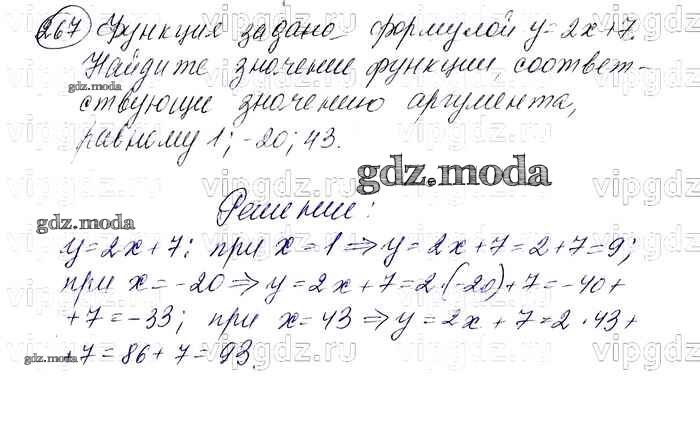 267 Функция задано формулой y=2x+7.
Найдите значение функции, соответ-
ствующие значению аргумента,
равному 1; -20; 43.
Решение:
y=2x+7: при x=1⇒y=2x+7=2+7=9;
при x=-20⇒y=2x+7=2·(-20)+7=-40+
+7=-33; при x=43⇒y=2x+7=2·43+
+7=86+7=93.
gdz.moda
gdz.moda
gdz.moda
gdz.moda
vipgdz.ru